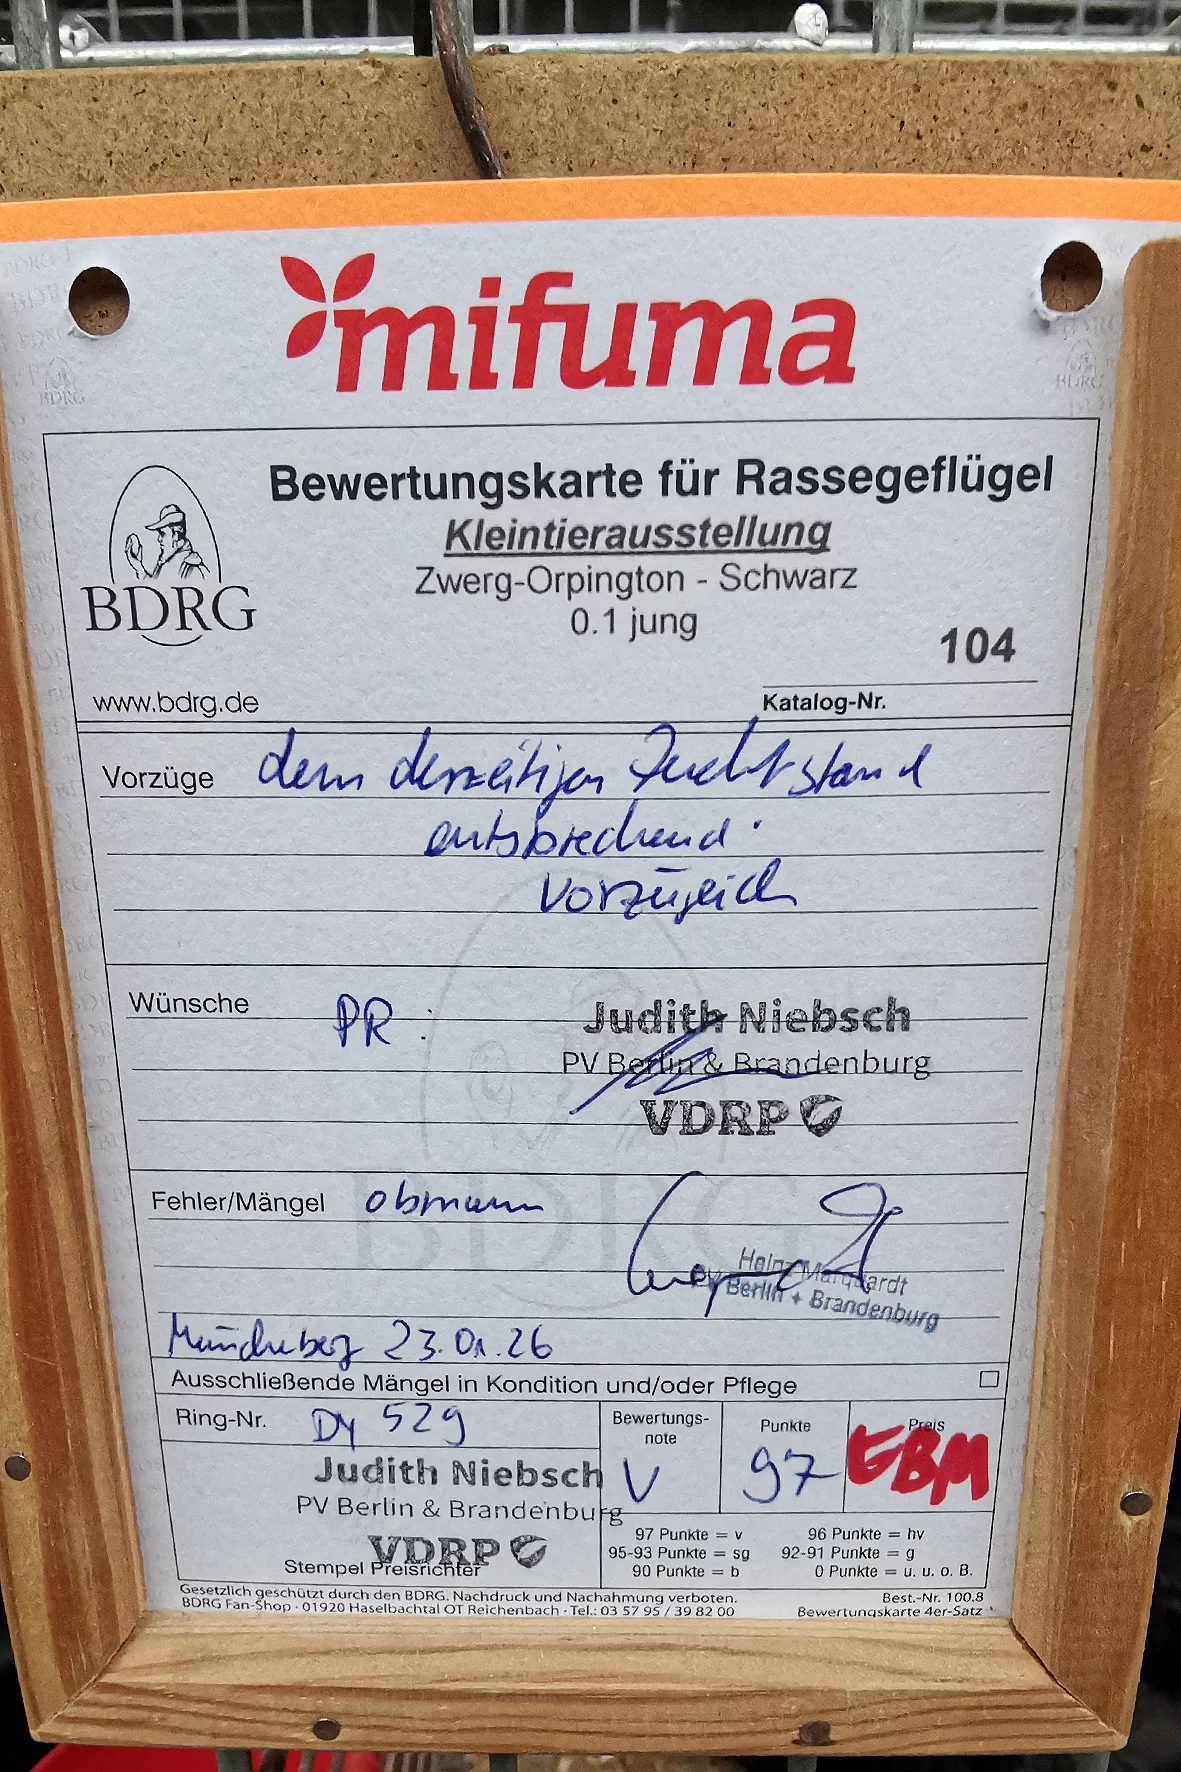 mifuma
Bewertungskarte für Rassegeflügel
Kleintierausstellung
Zwerg-Orpington - Schwarz
0.1 jung
BDRG
104
www.bdrg.de
Katalog-Nr.
Vorzüge dem derzeitigen Zuchtstand
entsprechend
vorzüglich
Wünsche PR:
Judith Niebsch
PV Berlin & Brandenburg
VDRP
Fehler/Mängel Obmann
Heinz Marquardt
PV Berlin + Brandenburg
Müncheberg 23.01.26
Ausschließende Mängel in Kondition und/oder Pflege
Ring-Nr. DY 529
Bewertungs-
note
V
Punkte
97
Preis
EBM
Judith Niebsch
PV Berlin & Brandenburg
VDRP
Stempel Preisrichter
97 Punkte = v 96 Punkte = hv
95-93 Punkte = sg 92-91 Punkte = g
90 Punkte = b 0 Punkte = u. u. o. B.
Gesetzlich geschützt durch den BDRG. Nachdruck und Nachahmung verboten. Best.-Nr. 100.8
BDRG Fan-Shop · 01920 Haselbachtal OT Reichenbach · Tel.: 03 57 95 / 39 82 00 Bewertungskarte 4er-Satz